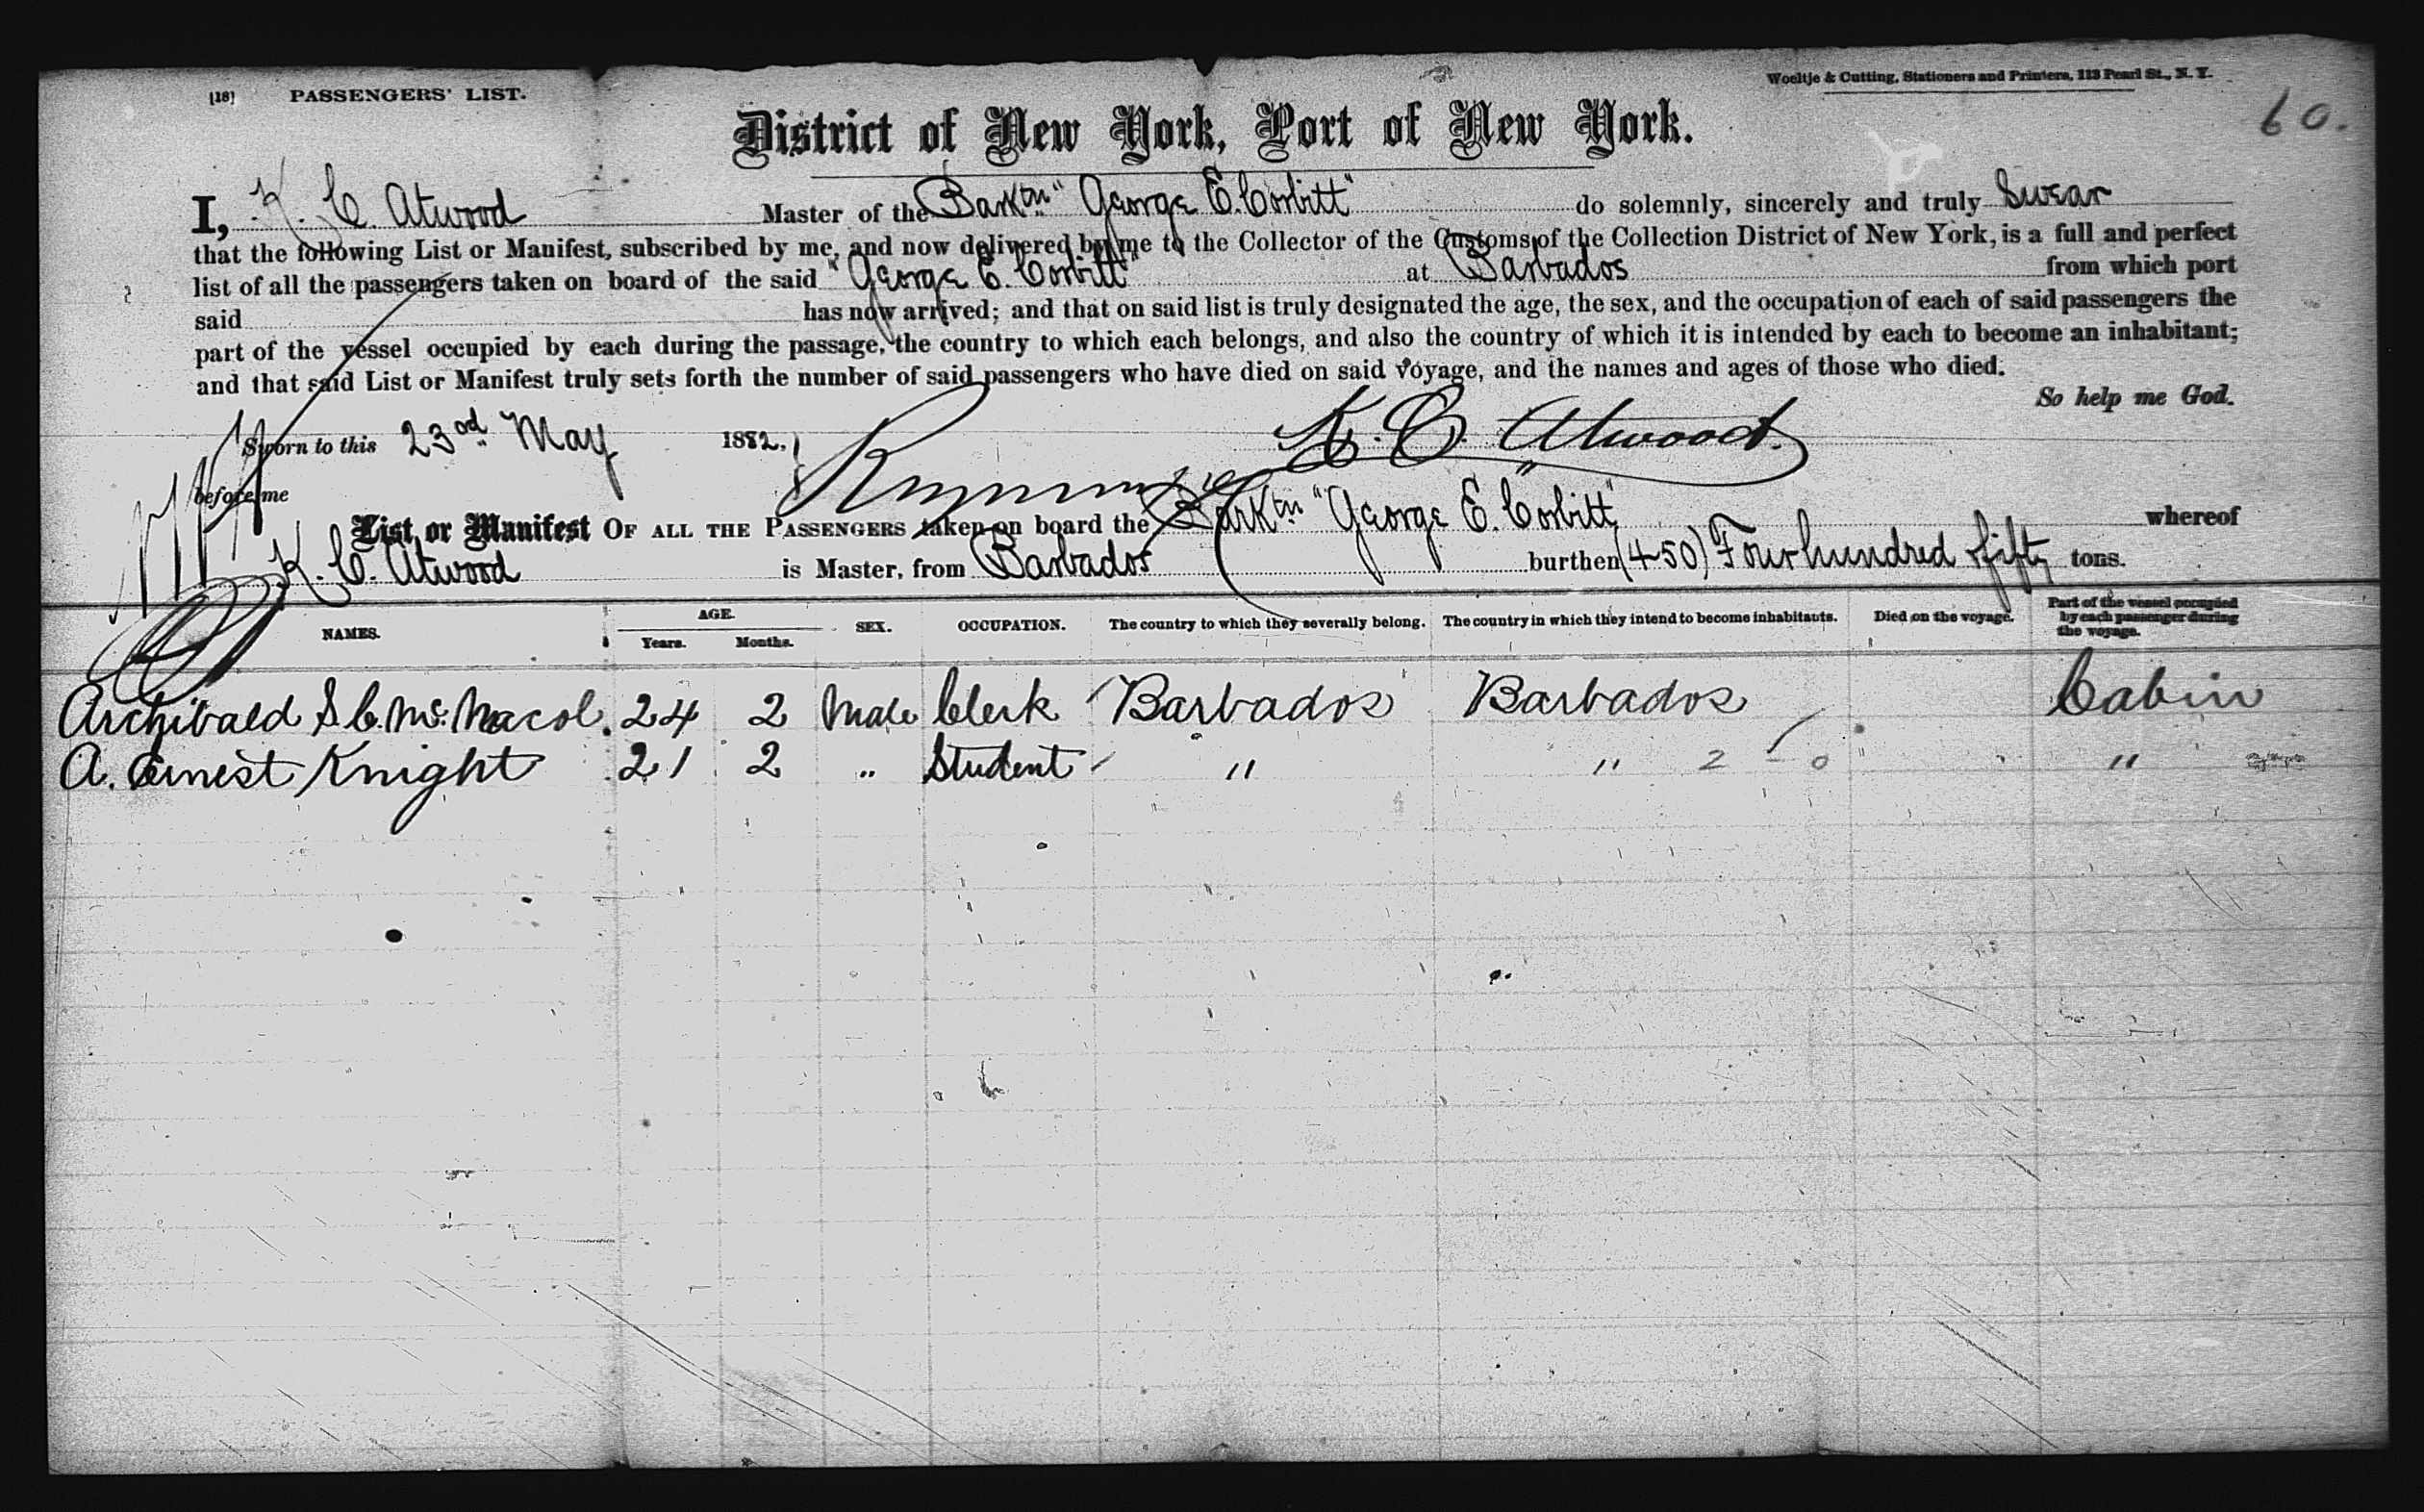 [18] PASSENGERS' LIST.
Woeltje & Cutting, Stationers and Printers, 113 Pearl St., N. Y.
60.
District of New York, Port of New York.
I, K. C. Atwood Master of the Barktn "George E. Corbitt" do solemnly, sincerely and truly Swear
that the following List or Manifest, subscribed by me, and now delivered by me to the Collector of the Customs of the Collection District of New York, is a full and perfect
list of all the passengers taken on board of the said "George E. Corbitt" at Barbados from which port
said has now arrived; and that on said list is truly designated the age, the sex, and the occupation of each of said passengers the
part of the vessel occupied by each during the passage, the country to which each belongs, and also the country of which it is intended by each to become an inhabitant;
and that said List or Manifest truly sets forth the number of said passengers who have died on said voyage, and the names and ages of those who died.
So help me God.
Sworn to this 23rd May 1882. K. C. Atwood.
before me
List or Manifest OF ALL THE PASSENGERS taken on board the Barktn "George E. Corbitt" whereof
K. C. Atwood is Master, from Barbados burthen (450) Four hundred & fifty tons.
NAMES. AGE. Years. Months. SEX. OCCUPATION. The country to which they severally belong. The country in which they intend to become inhabitants. Died on the voyage. Part of the vessel occupied by each passenger during the voyage.
Archibald S. C. Mc. Nacol. 24 2 Male Clerk Barbados Barbados Cabin
A. Ernest Knight 21 2 " Student " " 2 - 0 "